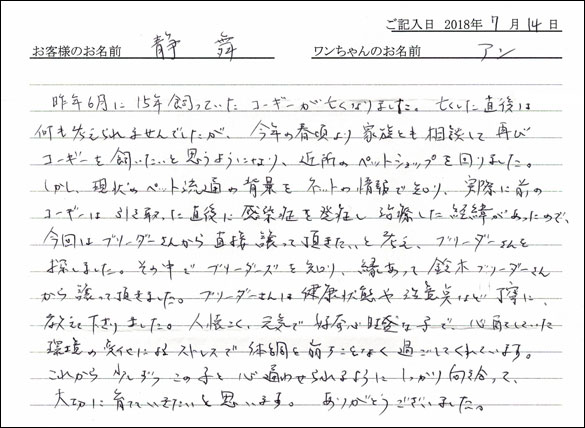 ご記入日 2018年 7月 14日
お客様のお名前 静 舞 ワンちゃんのお名前 アン
昨年6月に15年飼っていたコーギーが亡くなりました。亡くした直後は
何も考えられませんでしたが、今年の春頃より家族とも相談して再び
コーギーを飼いたいと思うようになり、近所のペットショップを回りました。
しかし、現状のペット流通の背景をネットの情報で知り、実際に前の
コーギーは引き取った直後に感染症を発症し治療した経緯があったので、
今回はブリーダーさんから直接譲って頂きたいと考え、ブリーダーさんを
探しました。その中でブリーダーズを知り、縁あって鈴木ブリーダーさん
から譲って頂きました。ブリーダーさんは健康状態や注意点など丁寧に、
教えて下さりました。人懐こく、元気で好奇心旺盛な子で、心配していた
環境の変化によるストレスで体調を崩すことなく過ごしてくれています。
これから少しずつこの子と心通わせられるようにしっかり向き合って、
大切に育てていきたいと思います。ありがとうございました。